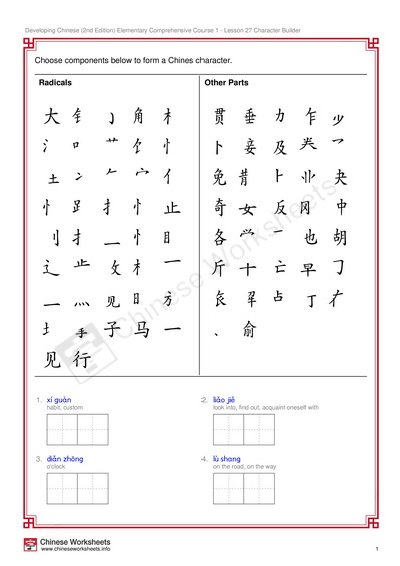 Developing Chinese (2nd Edition) Elementary Comprehensive Course 1 - Lesson 27 Character Builder
Choose components below to form a Chines character.
Radicals
大 钅 亅 角 木
氵 口 艹 饣 忄
土 冫 𠂉 宀 亻
忄 𧾷 扌 忄 止
刂 扌 二 忄 目
辶 龷 攵 木 一
一 灬 见 日 方
土 手 子 马 一
见 行
Other Parts
贯 垂 力 乍 少
卜 妾 及 龹 乛
免 昔 卜 业 夬
奇 女 反 冈 中
各 𭕄 一 也 胡
斤 十 亡 早 刁
占 丁
、 俞
Chinese Worksheets
1. xí guàn
habit, custom
2. liǎo jiě
look into, find out, acquaint oneself with
3. diǎn zhōng
o'clock
4. lù shang
on the road, on the way
Chinese Worksheets
www.chineseworksheets.info
1